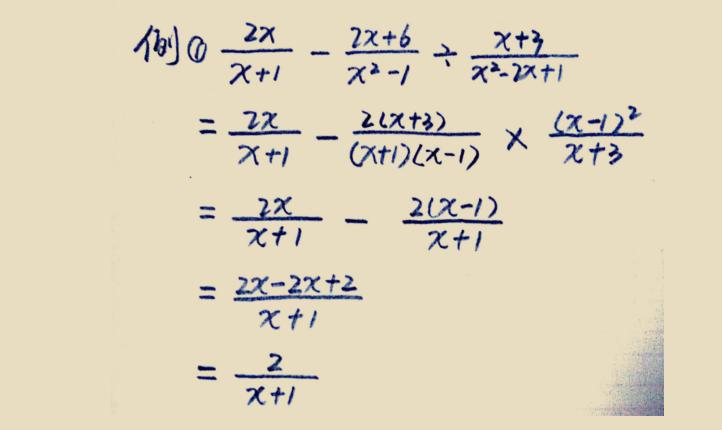 例① 2x/(x+1) - (2x+6)/(x²-1) ÷ (x+3)/(x²-2x+1)
= 2x/(x+1) - 2(x+3)/((x+1)(x-1)) × (x-1)²/(x+3)
= 2x/(x+1) - 2(x-1)/(x+1)
= (2x-2x+2)/(x+1)
= 2/(x+1)